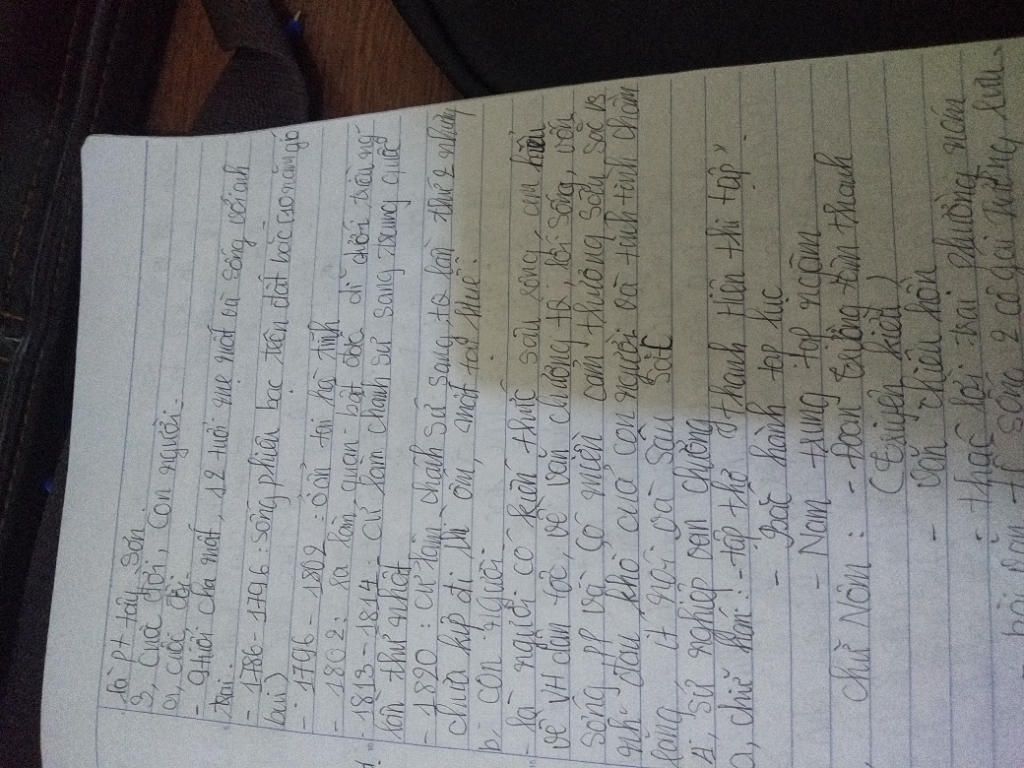 là pt tây Sơn.
3, Cuộc đời, con người.
a, cuộc đời
- 9 tuổi cha mất, 12 tuổi mẹ mất và sống với anh
trai.
- 1786 - 1796: sống phiêu bạc trên đất bắc (10 năm gió
bụi)
- 1796 - 1802: ở ẩn tại hà tĩnh
- 1802: ra làm quan bất đắc dĩ dưới triều ng
- 1813 - 1814: cử làm chánh sứ sang trung quốc
lần thứ nhất
- 1820: cử làm chánh sứ sang tq lần thứ 2 nhưng
chưa kịp đi thì ốm, mất tại huế.
b - con người.
- là người có kiến thức sâu rộng, am hiểu
về VH dân tộc, về văn chương tq, lối sống, vốn
sống pp và có niềm cảm thương sâu sắc vs
nỗi đau khổ của con người và tính tình trầm
lặng ít nói và sâu sắc
4, sự nghiệp văn chương
a, chữ hán: - tập thơ "thanh hiên thi tập"
- Bắc hành tạp lục
- Nam trung tạp ngâm
chữ Nôm: - đoạn trường tân thanh
(truyện kiều)
- văn chiêu hồn
- thác lời trai phường nón
- sống 2 cô gái trường lưu.